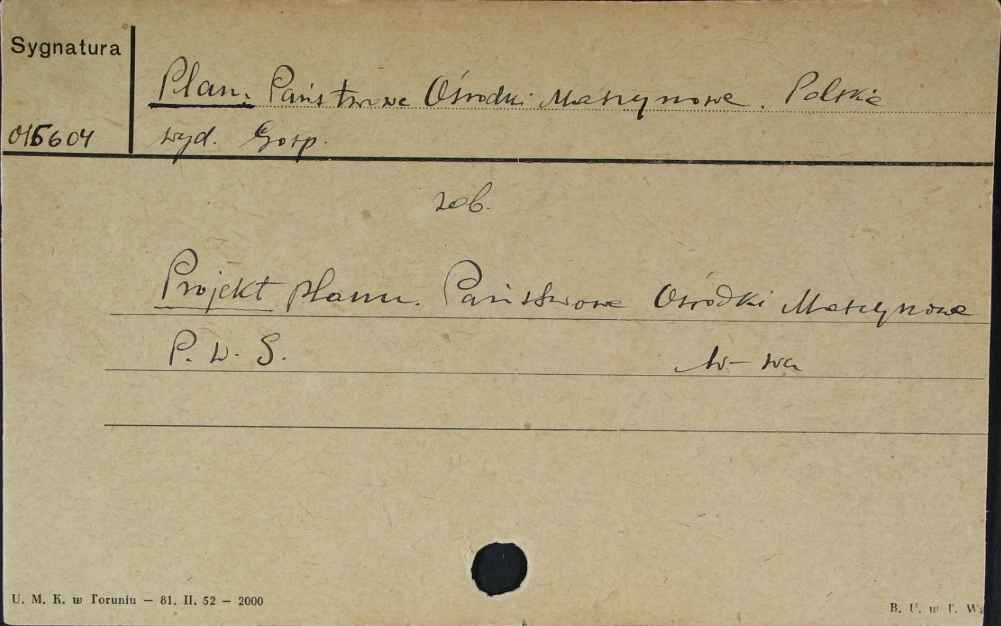 Sygnatura
Plan. Państwowe Ośrodki Maszynowe. Polskie
015604 wyd. Gosp.
zob.
Projekt planu. Państwowe Ośrodki Maszynowe
P. W. G. W-wa
U. M. K. w Toruniu — 81. II. 52 — 2000
B. U. w T. W